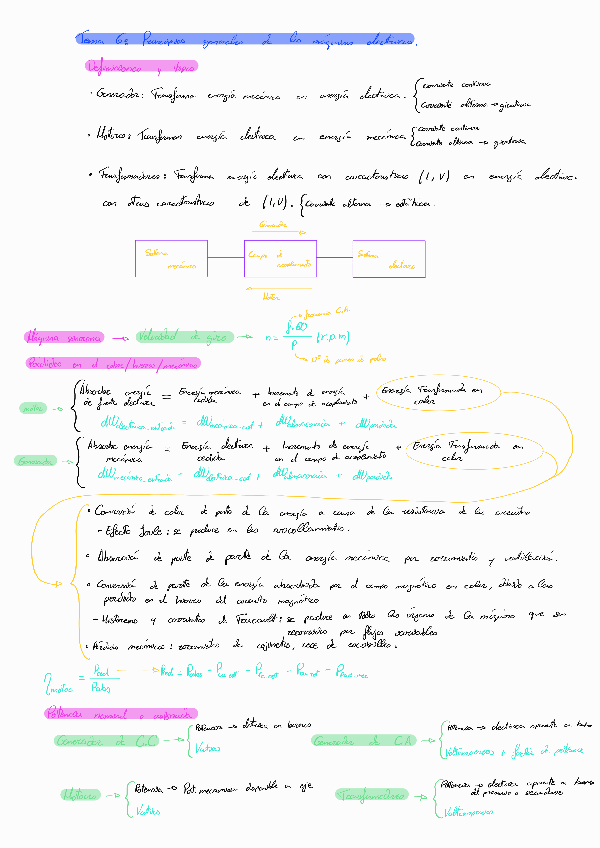 Tema 6: Principios generales de las máquinas eléctricas.
Definiciones y tipos
· Generador: Transforma energía mecánica en energía eléctrica. { corriente continua
corriente alterna → giratoria
· Motores: Transforman energía eléctrica en energía mecánica { corriente continua
corriente alterna → giratoria
· Transformadores: Transforma energía eléctrica con características (I, V) en energía eléctrica
con otras características de (I, V). { corriente alterna → estática.
Generador
Sistema mecánico
Campo de acoplamiento
Sistema eléctrico
Motor
→ frecuencia C.A.
Máquina síncrona → Velocidad de giro → n = f·60 / P (r.p.m)
→ Nº de pares de polos
Perdidas en el cobre/hierro/mecánicas
Motor → { Absorbe energía de fuente eléctrica = Energía mecánica cedida + Incremento de energía en el campo de acoplamiento + Energía Transformada en calor
Generador → { Absorbe energía mecánica = Energía eléctrica cedida + Incremento de energía en el campo de acoplamiento + Energía Transformada en calor
· Conversión de calor de parte de la energía a causa de la resistencia de los circuitos
- Efecto Joule: se produce en los arrollamientos.
· Absorción de parte de la energía mecánica por rozamiento y ventilación.
· Conversión de parte de la energía absorbida por el campo magnético en calor, debido a las
perdidas en el hierro del circuito magnético
- Histéresis y corrientes de Foucault: se produce en todos los órganos de la máquina que son
recorridos por flujos variables
· Pérdida mecánica: rozamientos de cojinetes, roce de escobillas.
η motor = Pcul / Pabs
Potencia nominal o asignada
Generador de C.C → { Potencia → eléctrica en bornes
Vatios
Generador de C.A → { Potencia → eléctrica aparente en bornes
Voltiamperios o factor de potencia
Motores → { Potencia → Pot. mecánica disponible en eje
Vatios
Transformadores → { Potencia → eléctrica aparente en bornes
del primario o secundario
Voltiamperios